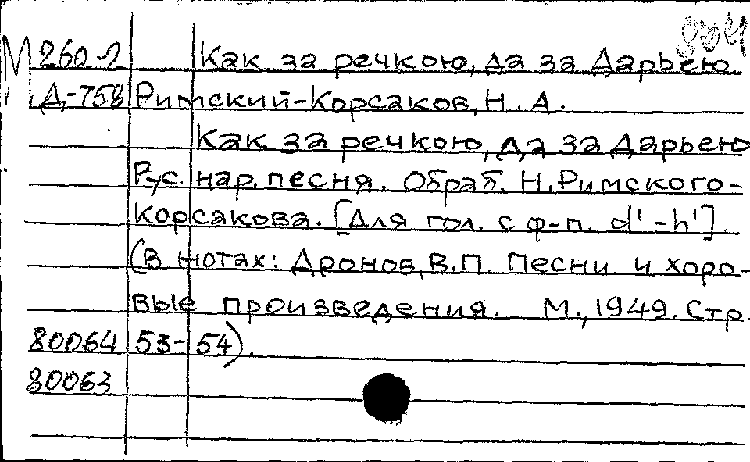 М 260-2 Как за речкою, да за Дарьею
Д-758 Римский-Корсаков, Н. А.
Как за речкою, да за Дарьею
Рус. нар. песня. Обраб. Н. Римского-
Корсакова. [Для гол. с ф-п. d'-h'].
(В нотах: Дронов, В.П. Песни и хоро-
вые произведения. М., 1949. Стр.
80064 53-54).
80063